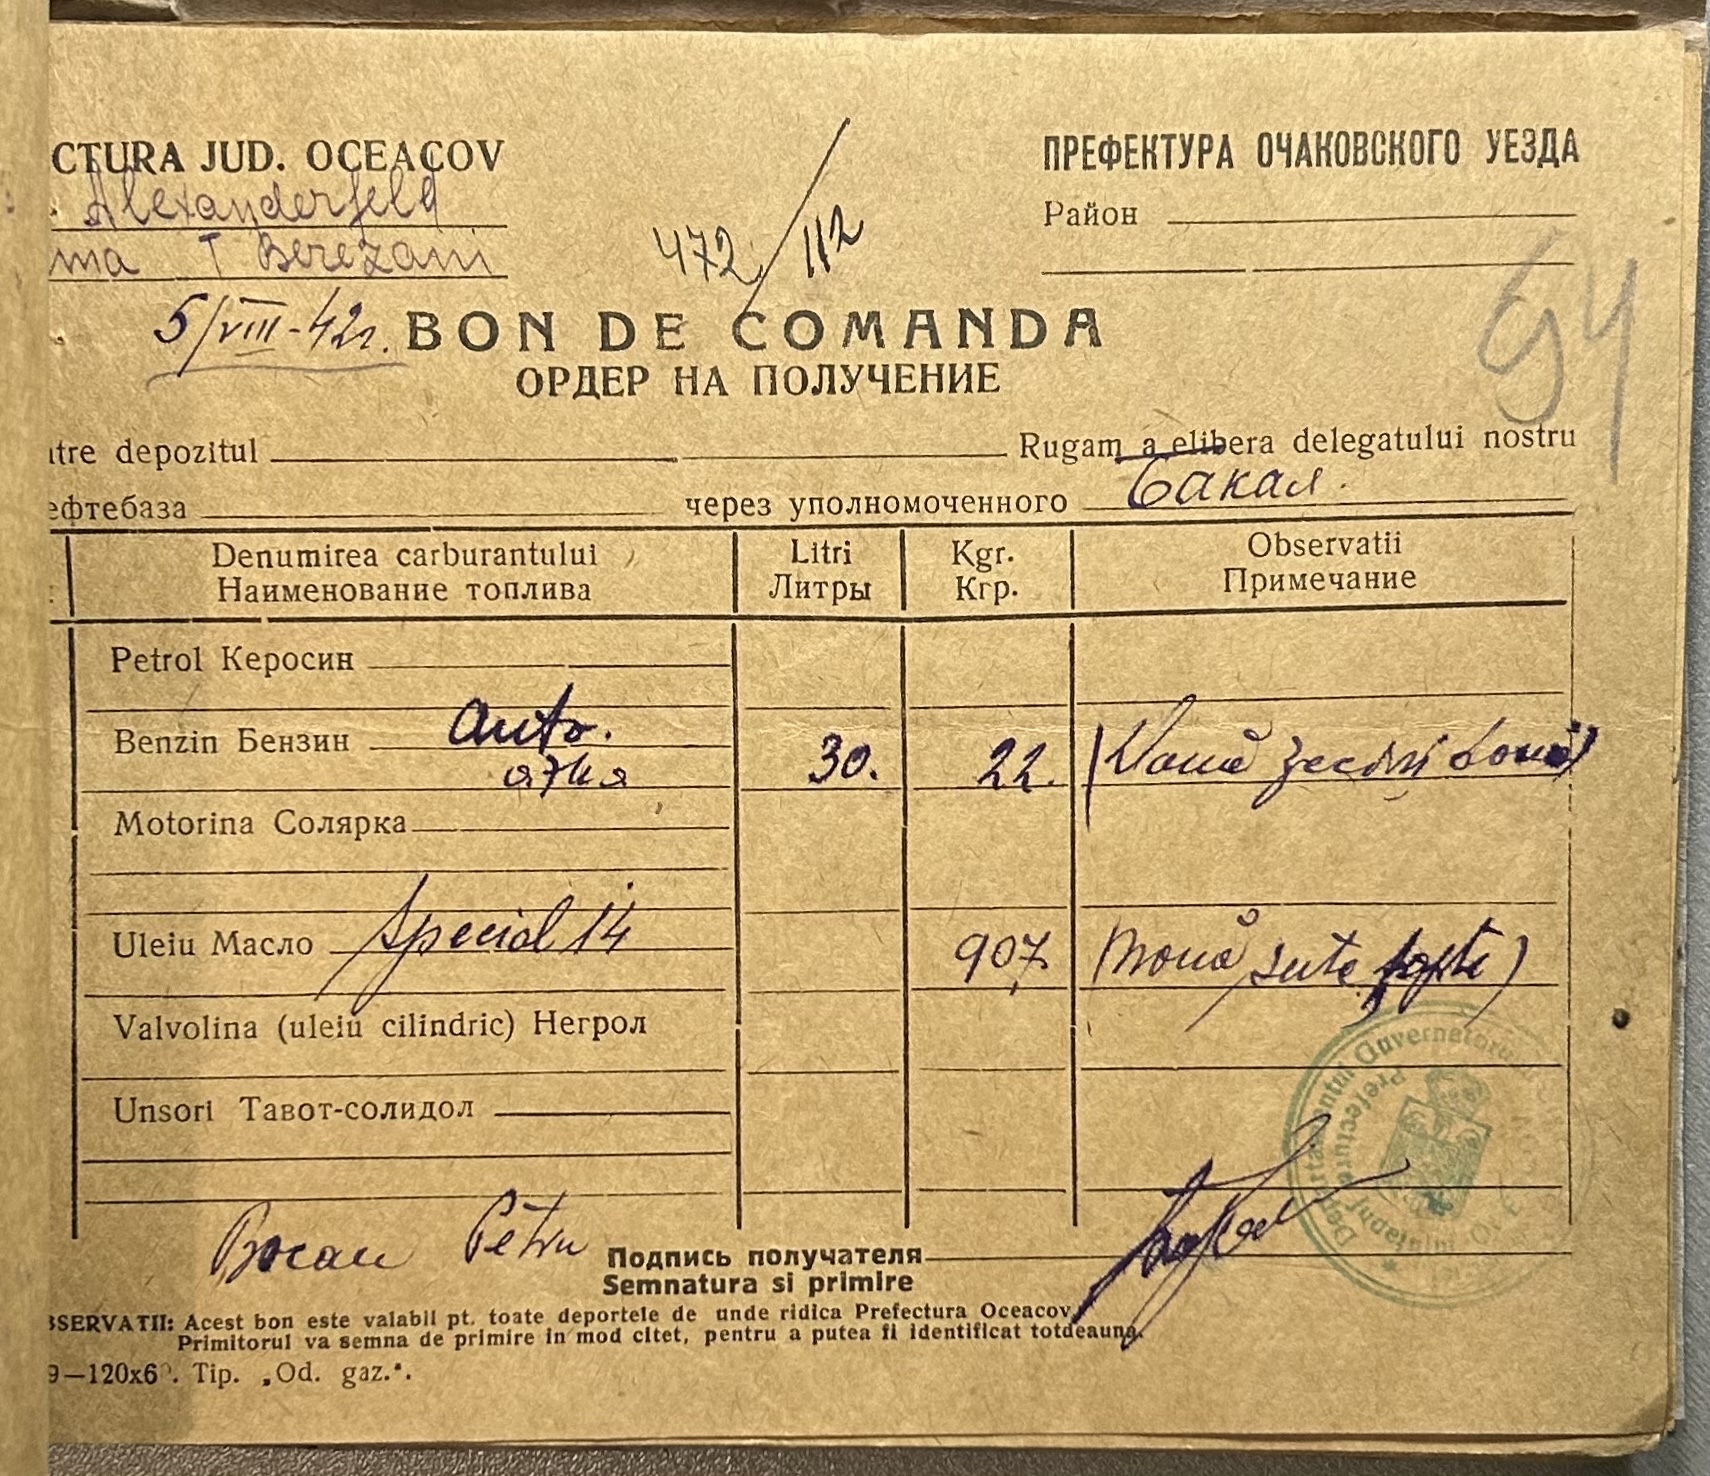 CTURA JUD. OCEACOV
ПРЕФЕКТУРА ОЧАКОВСКОГО УЕЗДА
Alexanderfeld
Район
ma T Berezani
472/112
94
5/VIII-42г.
BON DE COMANDA
ОРДЕР НА ПОЛУЧЕНИЕ
tre depozitul Rugam a elibera delegatului nostru
ефтебаза через уполномоченного Бакал.
Denumirea carburantului Litri Kgr. Observatii
Наименование топлива Литры Кгр. Примечание
Petrol Керосин
Benzin Бензин auto. 30. 22. (Două zeci și două)
Motorina Солярка
Uleiu Масло special 14 907 (nouă sute șapte)
Valvolina (uleiu cilindric) Негрол
Unsori Тавот-солидол
Departamentul Guvernatorului
Prefectura Județului
Bocan Petru Подпись получателя
Semnatura si primire
SERVATII: Acest bon este valabil pt. toate deportele de unde ridica Prefectura Oceacov,
Primitorul va semna de primire in mod citet, pentru a putea fi identificat totdeauna.
9—120x6 . Tip. „Od. gaz.“.